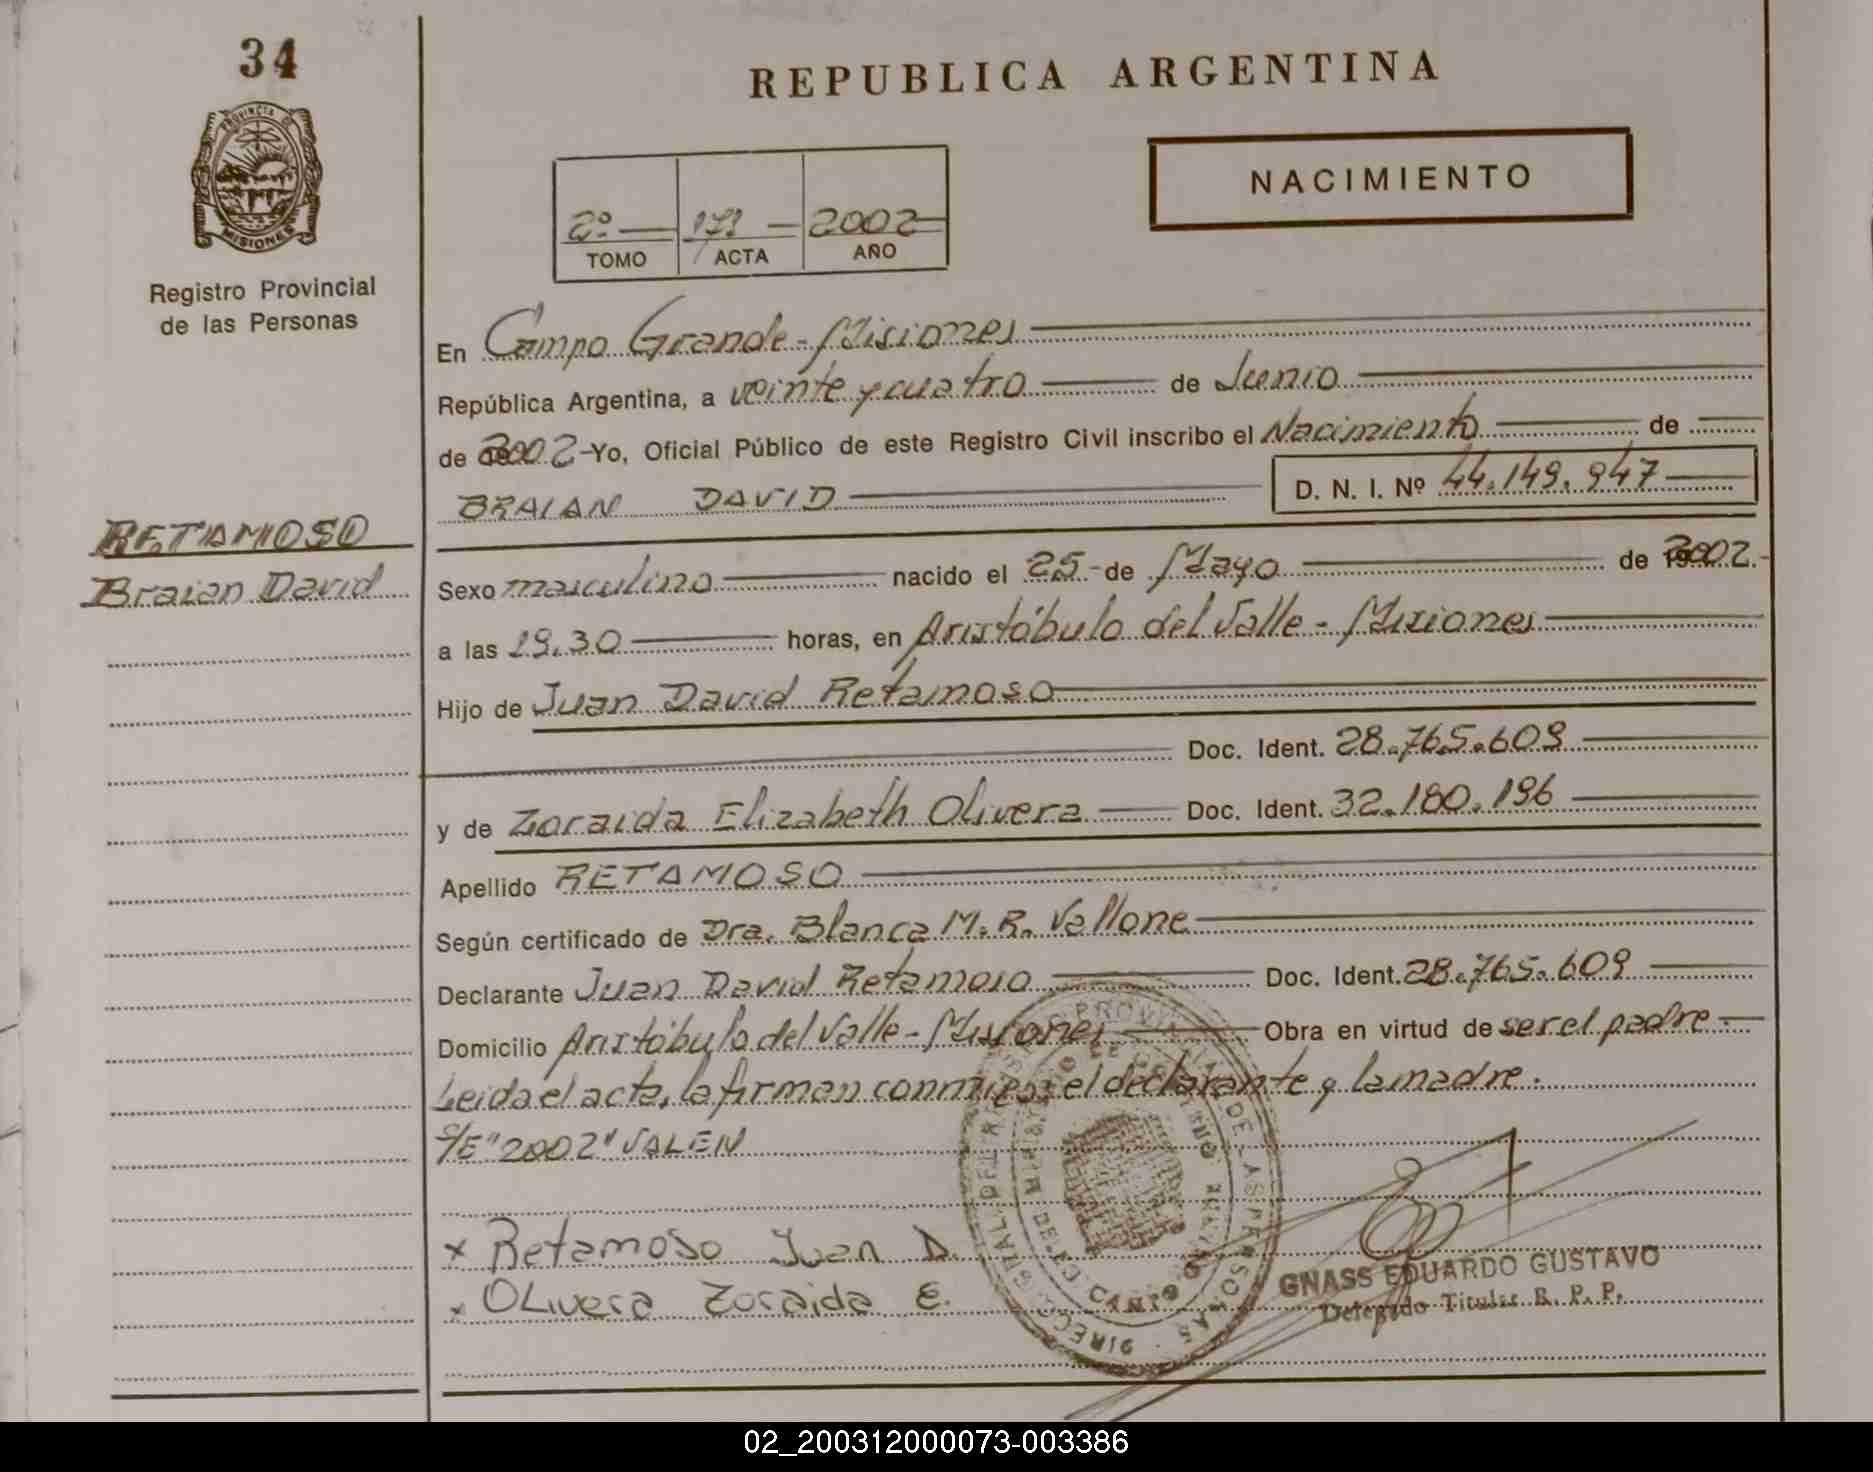 34
REPUBLICA ARGENTINA
PROVINCIA DE
MISIONES
Registro Provincial
de las Personas
NACIMIENTO
2º 171 2002
TOMO ACTA AÑO
En Campo Grande - Misiones
República Argentina, a veinte y cuatro de Junio
de 2002 - Yo, Oficial Público de este Registro Civil inscribo el Nacimiento de
BRAIAN DAVID D. N. I. Nº 44.149.947
RETAMOSO
Braian David
Sexo masculino nacido el 25 - de Mayo de 2002.-
a las 19.30 horas, en Aristóbulo del Valle - Misiones
Hijo de Juan David Retamoso
Doc. Ident. 28.765.609
y de Zoraida Elizabeth Olivera Doc. Ident. 32.180.196
Apellido RETAMOSO
Según certificado de Dra. Blanca M. R. Vallone
Declarante Juan David Retamoso Doc. Ident. 28.765.609
Domicilio Aristóbulo del Valle - Misiones Obra en virtud de ser el padre.-
Leida el acta, la firman conmigo: el declarante y la madre.
S/E "2002" VALEN
x Retamoso Juan D.
x OLivera Zoraida E.
GNASS EDUARDO GUSTAVO
Delegado Titular R. P. P.
02_200312000073-003386